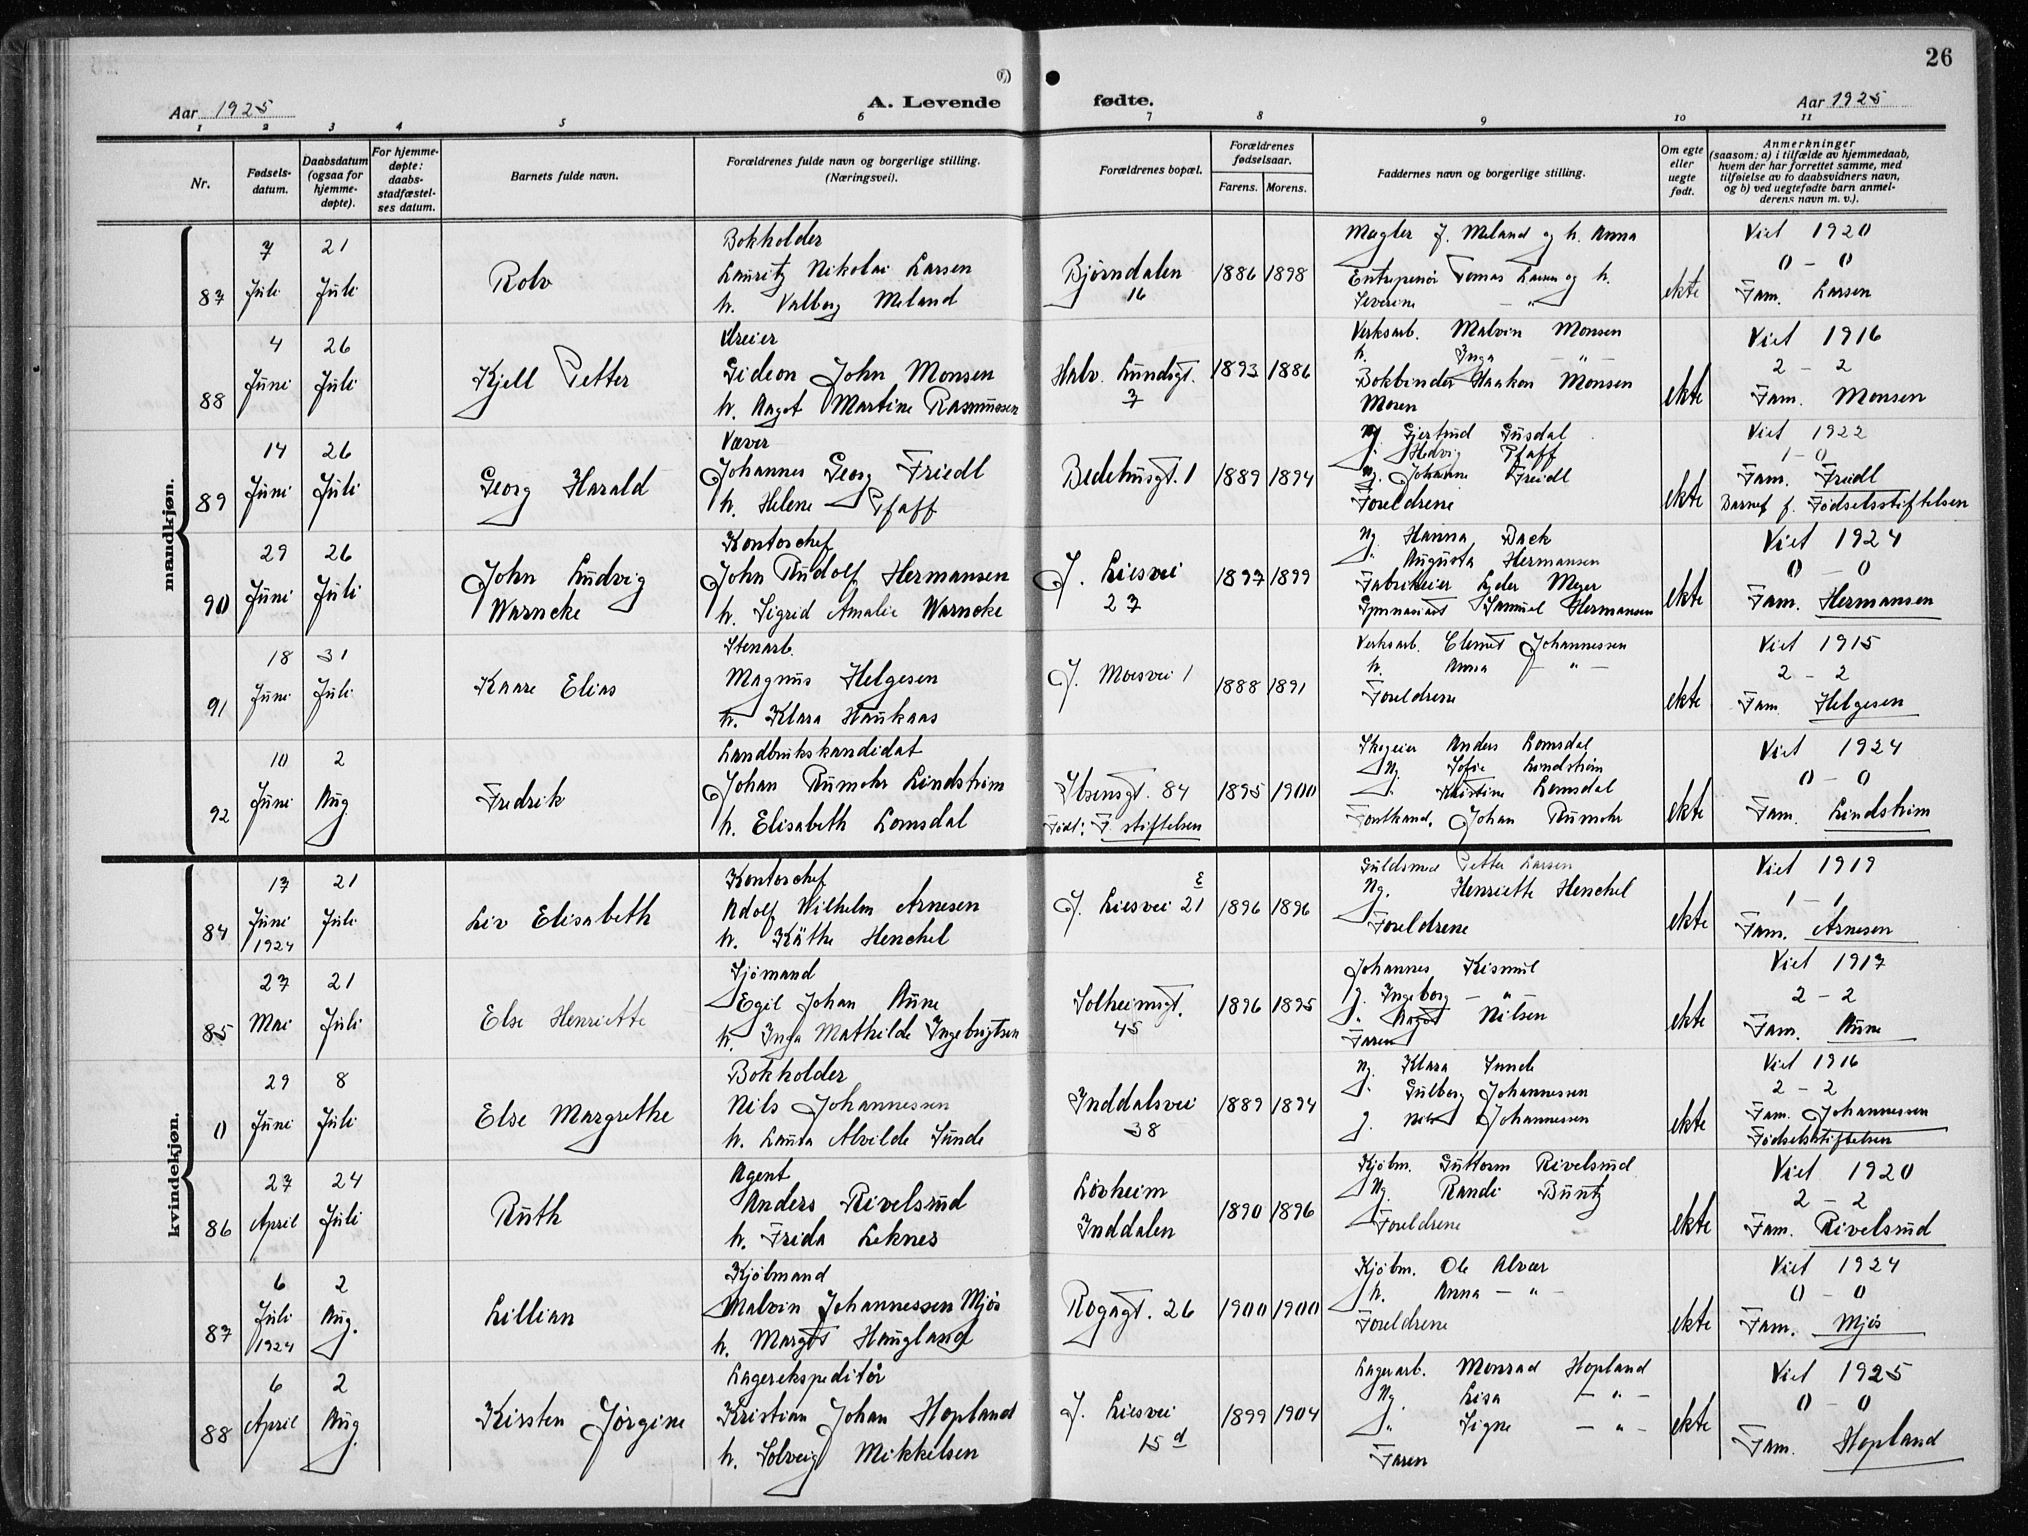 26
Aar 1925
A. Levende
fødte.
Aar 1925
1 2 3 4 5 6 7 8 9 10 11
Nr.
Fødsels-
datum.
Daabsdatum
(ogsaa for
hjemme-
døpte).
For hjemme-
døpte:
daabs-
stadfæstel-
ses datum.
Barnets fulde navn.
Forældrenes fulde navn og borgerlige stilling.
(Næringsvei).
Forældrenes bopæl.
Forældrenes
fødselsaar.
Farens. Morens.
Faddernes navn og borgerlige stilling.
Om egte
eller
uegte
født.
Anmerkninger
(saasom: a) i tilfælde av hjemmedaab,
hvem der har forrettet samme, med
tilføielse av to daabsvidners navn,
og b) ved uegtefødte barn anmel-
derens navn m. v.).
mandkjøn.
87
7
Juli
21
Juli
Rolv
Bokholder
Lauritz Nikolai Larsen
h. Valborg Meland
Bjørndalen
16
1886 1898
Mægler J. Meland og h. Anna
Entreprenør Tomas Larsen og h.
Severine - " -
ekte
Viet 1920
0 - 0
Fam. Larsen
88
4
Juni
26
Juli
Kjell Petter
Dreier
Gideon John Monsen
h. Aagot Martine Rasmussen
Halv. Lundsgt.
7
1893 1886
Verksarb. Malvin Monsen
h. Inga - " -
Bokbinder Haakon Monsen
Moren
ekte
Viet 1916
2 - 2
Fam. Monsen
89
14
Juni
26
Juli
Georg Harald
Væver
Johannes Georg Friedl
h. Helene Pfaff
Bedehusgt. 1
1889 1894
Ng. Gjertrud Gusdal
j. Hedvig Pfaff
Ng. Johanne Friedl
Foreldrene
ekte
Viet 1922
1 - 0
Fam. Friedl
Barnef f. Fødselsstiftelsen
90
29
Juni
26
Juli
John Ludvig
Warncke
Kontorchef
John Rudolf Hermansen
h. Sigrid Amalie Warncke
J. Liesvei
27
1897 1899
Ng. Hanna Back
" Augusta Hermansen
Fabrikeier Lyder Meyer
Gymnasiast Samuel Hermansen
ekte
Viet 1924
0 - 0
Fam. Hermansen
91
18
Juni
31
Juli
Kaare Elias
Stenarb.
Magnus Helgesen
h. Klara Haukaas
J. Moesvei 1
1888 1891
Verksarb. Clemet Johannessen
h. Anna - " -
Foreldrene
ekte
Viet 1915
2 - 2
Fam. Helgesen
92
10
Juni
2
Aug.
Fredrik
Landbrukskandidat
Johan Rumohr Lindstrøm
h. Elisabeth Lomsdal
Ibsensgt. 84
Født: F. stiftelsen
1895 1900
Skogeier Anders Lomsdal
Ng. Sofie Lindstrøm
j. Kristine Lomsdal
Forstkand. Johan Rumohr
ekte
Viet 1924
0 - 0
Fam. Lindstrøm
kvindekjøn.
84
17
Juni
1924
21
Juli
Liv Elisabeth
Kontorchef
Adolf Wilhelm Arnesen
h. Käthe Henchel
J. Liesvei 21 E
1896 1896
Guldsmed Petter Larsen
Ng. Henriette Henchel
Foreldrene
ekte
Viet 1919
1 - 1
Fam. Arnesen
85
27
Mai
21
Juli
Else Henriette
Sjømand
Egil Johan Aune
h. Inga Mathilde Ingebrigtsen
Solheimsgt.
45
1896 1895
Johannes Kismul
g. Ingeborg - " -
" Aagot Nilsen
Faren
ekte
Viet 1917
2 - 2
Fam. Aune
0
29
Juni
8
Juli
Else Margrethe
Bokholder
Nils Johannessen
h. Laura Alvilde Sunde
Inddalsvei
38
1889 1894
Ng. Klara Sunde
j. Gulborg Johannessen
g. Nils Johannessen
ekte
Viet 1916
2 - 2
Fam. Johannessen
Fødselsstiftelsen
86
27
April
24
Juli
Ruth
Agent
Anders Rivelsrud
h. Frida Leknes
Løvheim
Inddalen
1890 1896
Kjøbm. Guttorm Rivelsrud
Ng. Randi Buntz
Foreldrene
ekte
Viet 1920
2 - 2
Fam. Rivelsrud
87
6
Juli
1924
2
Aug.
Lillian
Kjøbmand
Malvin Johannessen Mjøs
h. Margot Haugland
Rogagt. 26
1900 1900
Kjøbm. Ole Alvær
h. Anna - " -
Foreldrene
ekte
Viet 1924
0 - 0
Fam. Mjøs
88
6
April
2
Aug.
Kirsten Jørgine
Lagerekspeditør
Kristian Johan Hopland
h. Solveig Mikkelsen
J. Liesvei
15 d
1899 1904
Lagerarb. Monrad Hopland
Ng. Lisa - " -
" Signe - " -
Faren
ekte
Viet 1925
0 - 0
Fam. Hopland